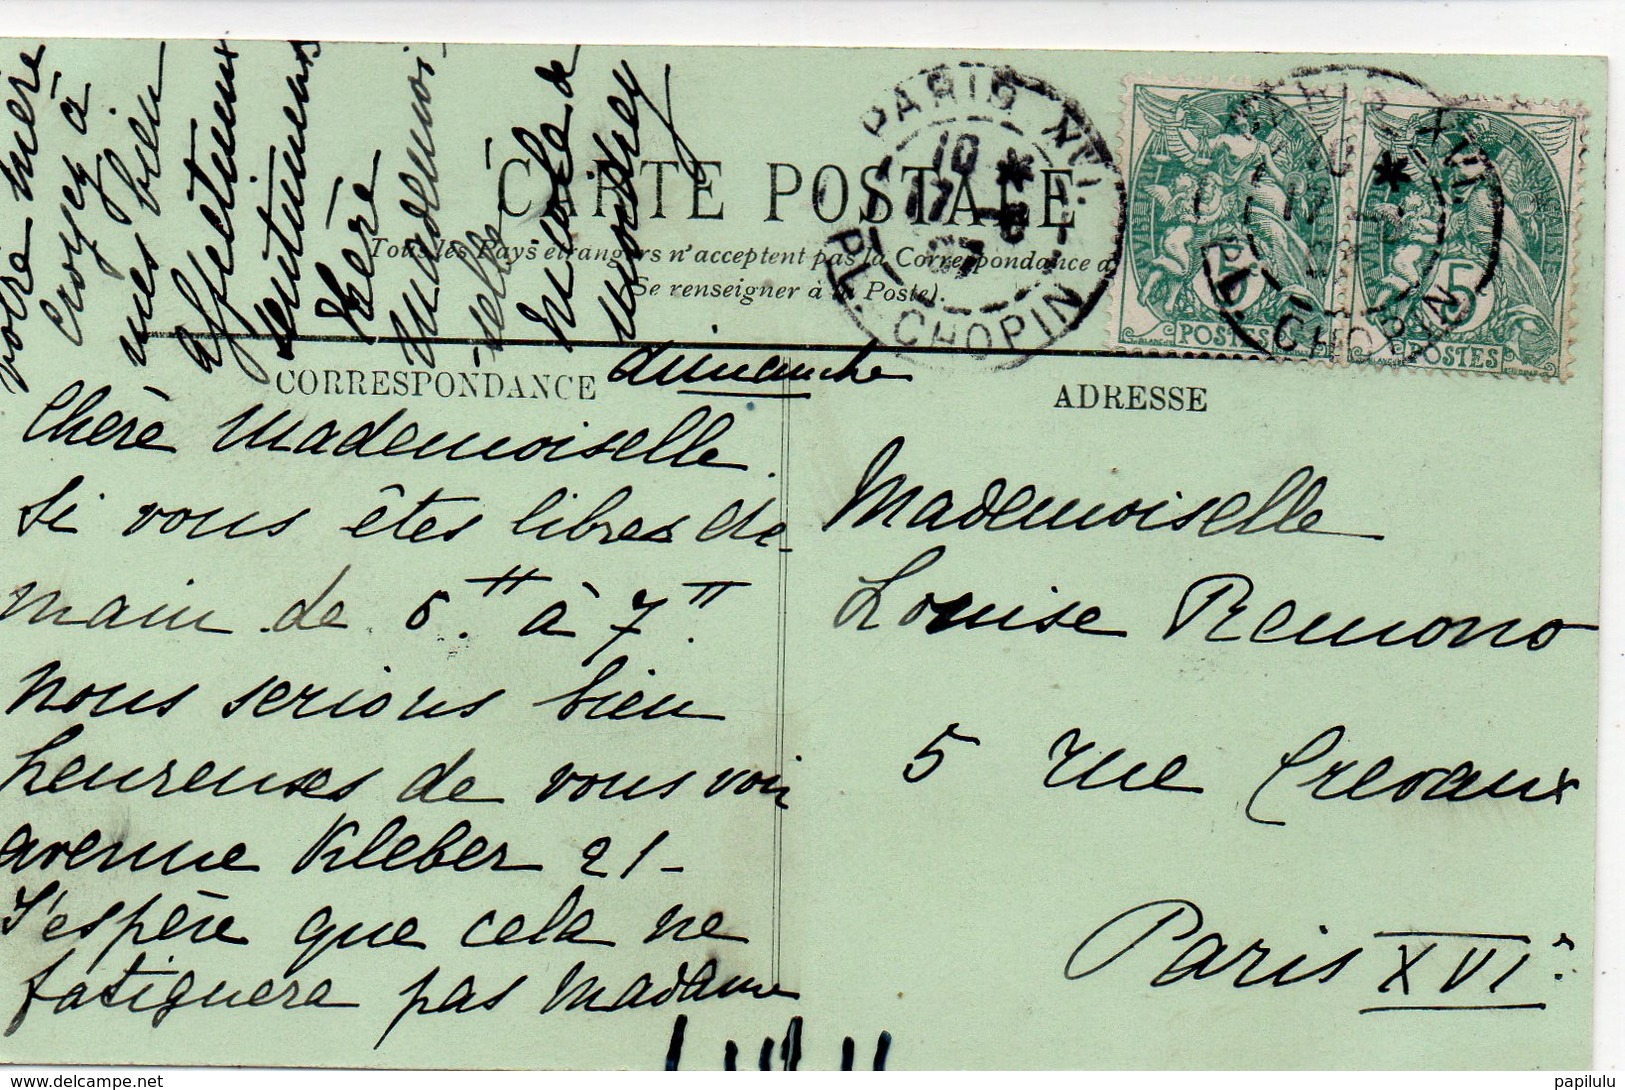 CARTE POSTALE
Tous les Pays étrangers n'acceptent pas la Correspondance a
Se renseigner à la Poste).
PARIS XVI.
10 *
17 - 6
07
PL. CHOPIN
PARIS XVI.
PL. CHOPIN
5 5
POSTES POSTES
CORRESPONDANCE
ADRESSE
dimanche
Chère Mademoiselle.
Si vous êtes libres de-
main de 6H. à 7H.
nous serions bien
heureuses de vous voir
avenue Kleber 21-
J'espère que cela ne
fatiguera pas Madame
votre mère
Croyez à
mes bien
affectueux
sentiments
Chère
Mademoi-
selle
de
Mademoiselle
Louise Remono
5 rue Crevaux
Paris XVIe
delcampe.net
papilulu